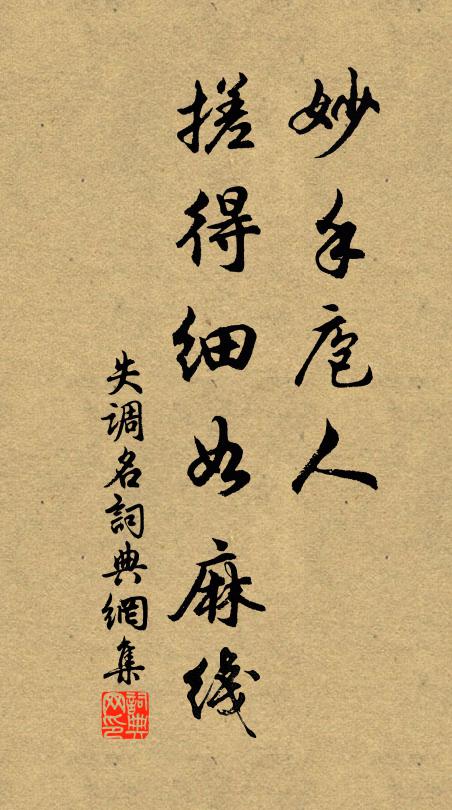 妙手庖人
搓得细如麻线
失调名詞典網集
詞典
网印